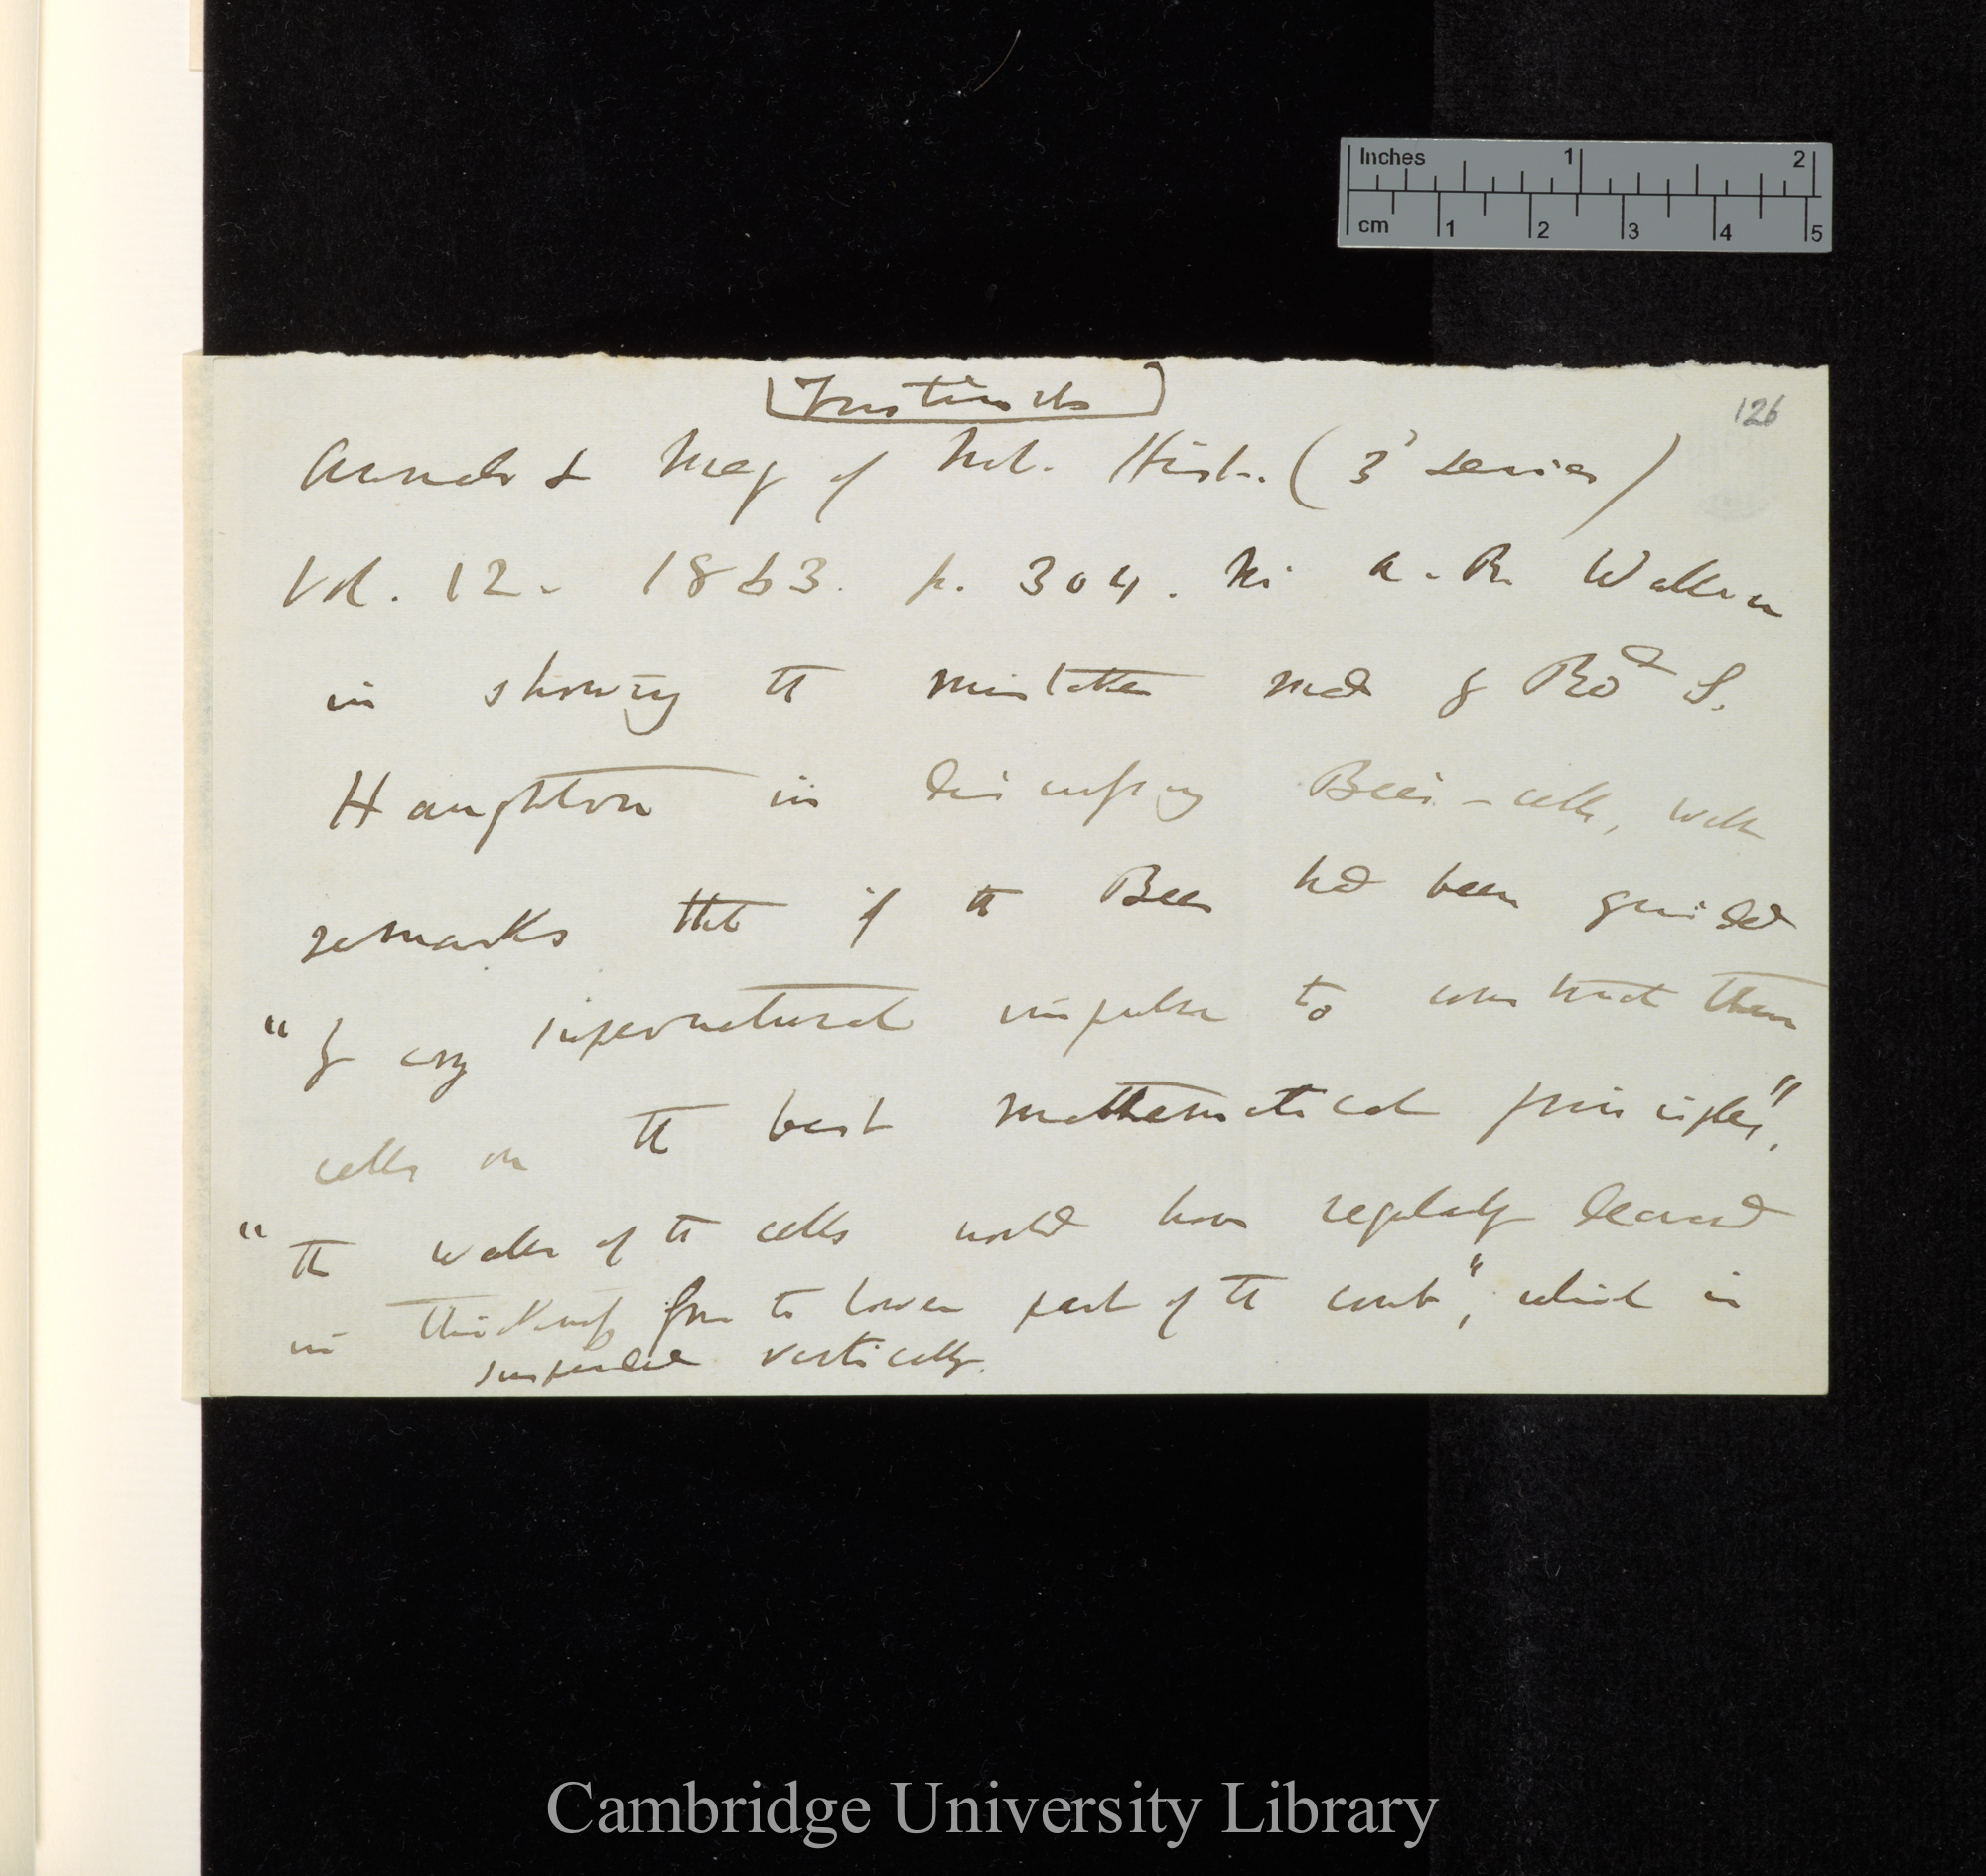 Inches 1 2
cm 1 2 3 4 5
[Instincts]
126
Annals & Mag of Nat. Hist. (3' series)
Vol. 12. 1863. p. 304. Mr A. R. Wallace
in showing the mistakes made by Revd S.
Haughton in discussing Bees-cells, well
remarks that if the Bees had been guided
"by any supernatural impulse to construct their
cells on the best mathematical principles",
"the walls of the cells would have regularly decreased
in thickness from the lower part of the comb", which is
suspended vertically.
Cambridge University Library